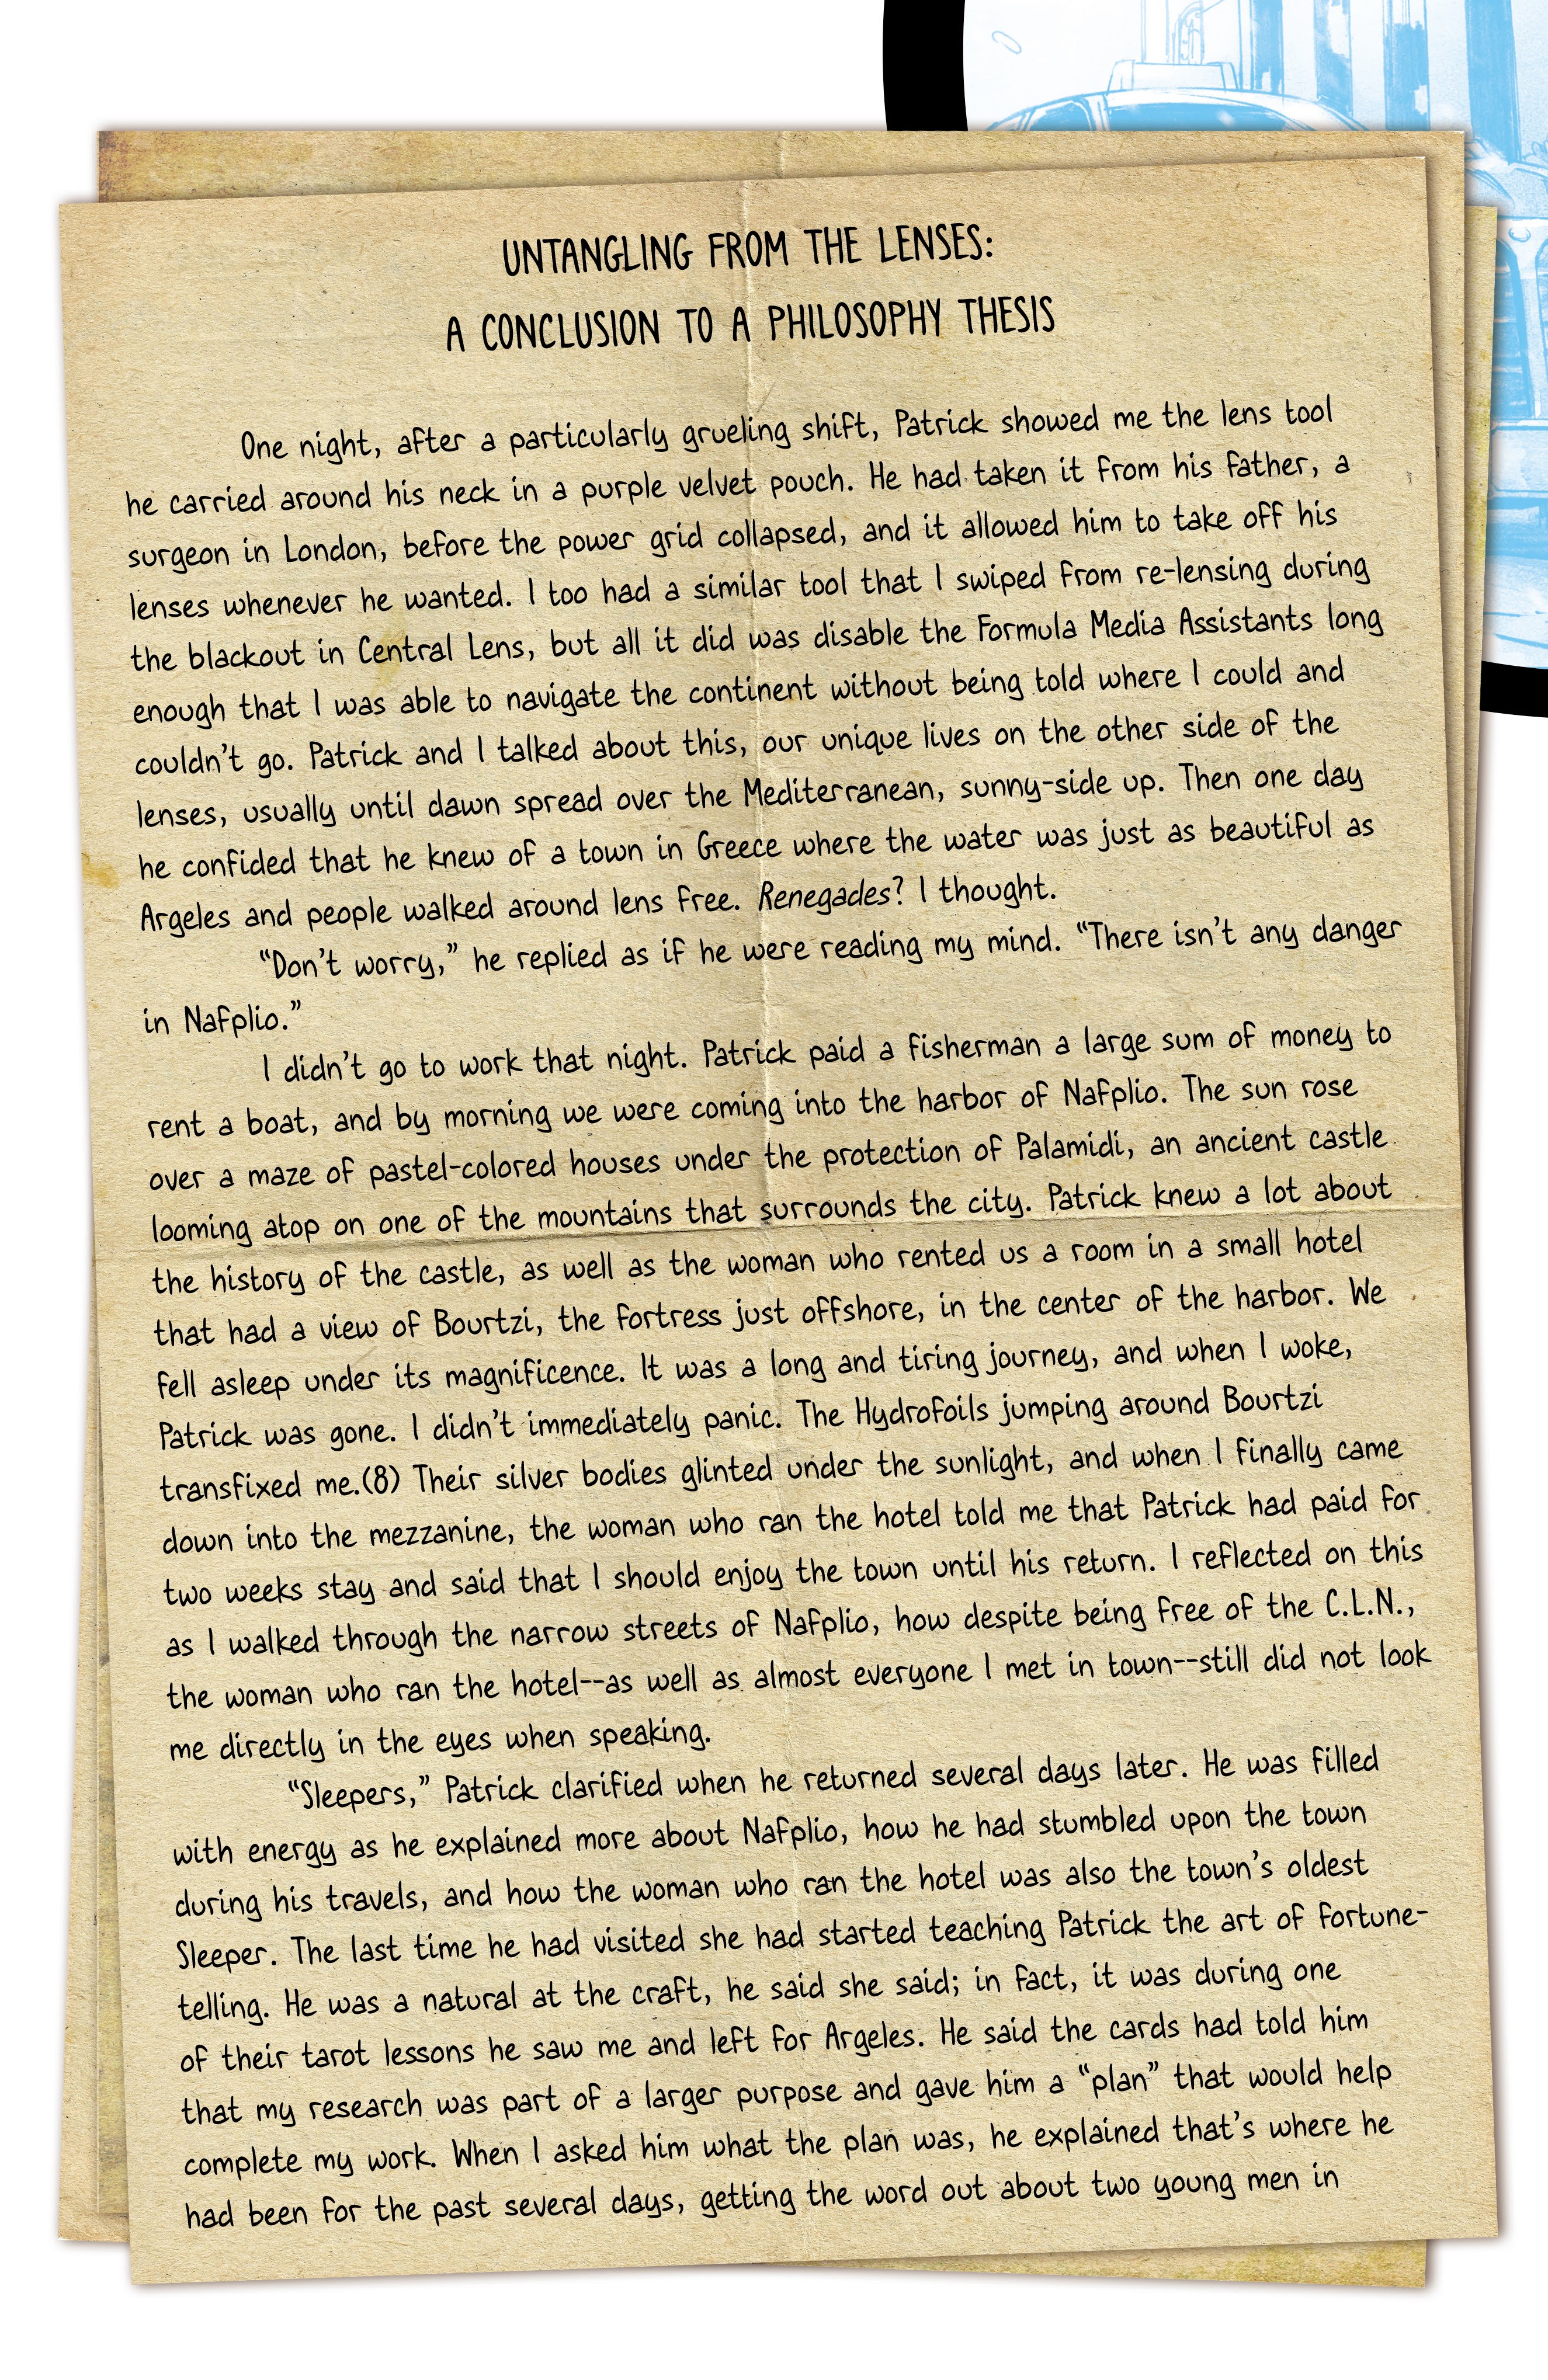 UNTANGLING FROM THE LENSES:
A CONCLUSION TO A PHILOSOPHY THESIS
One night, after a particularly grueling shift, Patrick showed me the lens tool
he carried around his neck in a purple velvet pouch. He had taken it from his father, a
surgeon in London, before the power grid collapsed, and it allowed him to take off his
lenses whenever he wanted. I too had a similar tool that I swiped from re-lensing during
the blackout in Central Lens, but all it did was disable the Formula Media Assistants long
enough that I was able to navigate the continent without being told where I could and
couldn't go. Patrick and I talked about this, our unique lives on the other side of the
lenses, usually until dawn spread over the Mediterranean, sunny-side up. Then one day
he confided that he knew of a town in Greece where the water was just as beautiful as
Argeles and people walked around lens free. Renegades? I thought.
"Don't worry," he replied as if he were reading my mind. "There isn't any danger
in Nafplio."
I didn't go to work that night. Patrick paid a fisherman a large sum of money to
rent a boat, and by morning we were coming into the harbor of Nafplio. The sun rose
over a maze of pastel-colored houses under the protection of Palamidi, an ancient castle
looming atop on one of the mountains that surrounds the city. Patrick knew a lot about
the history of the castle, as well as the woman who rented us a room in a small hotel
that had a view of Bourtzi, the fortress just offshore, in the center of the harbor. We
fell asleep under its magnificence. It was a long and tiring journey, and when I woke,
Patrick was gone. I didn't immediately panic. The Hydrofoils jumping around Bourtzi
transfixed me.(8) Their silver bodies glinted under the sunlight, and when I finally came
down into the mezzanine, the woman who ran the hotel told me that Patrick had paid for
two weeks stay and said that I should enjoy the town until his return. I reflected on this
as I walked through the narrow streets of Nafplio, how despite being free of the C.L.N.,
the woman who ran the hotel--as well as almost everyone I met in town--still did not look
me directly in the eyes when speaking.
"Sleepers," Patrick clarified when he returned several days later. He was filled
with energy as he explained more about Nafplio, how he had stumbled upon the town
during his travels, and how the woman who ran the hotel was also the town's oldest
Sleeper. The last time he had visited she had started teaching Patrick the art of fortune-
telling. He was a natural at the craft, he said she said; in fact, it was during one
of their tarot lessons he saw me and left for Argeles. He said the cards had told him
that my research was part of a larger purpose and gave him a "plan" that would help
complete my work. When I asked him what the plan was, he explained that's where he
had been for the past several days, getting the word out about two young men in